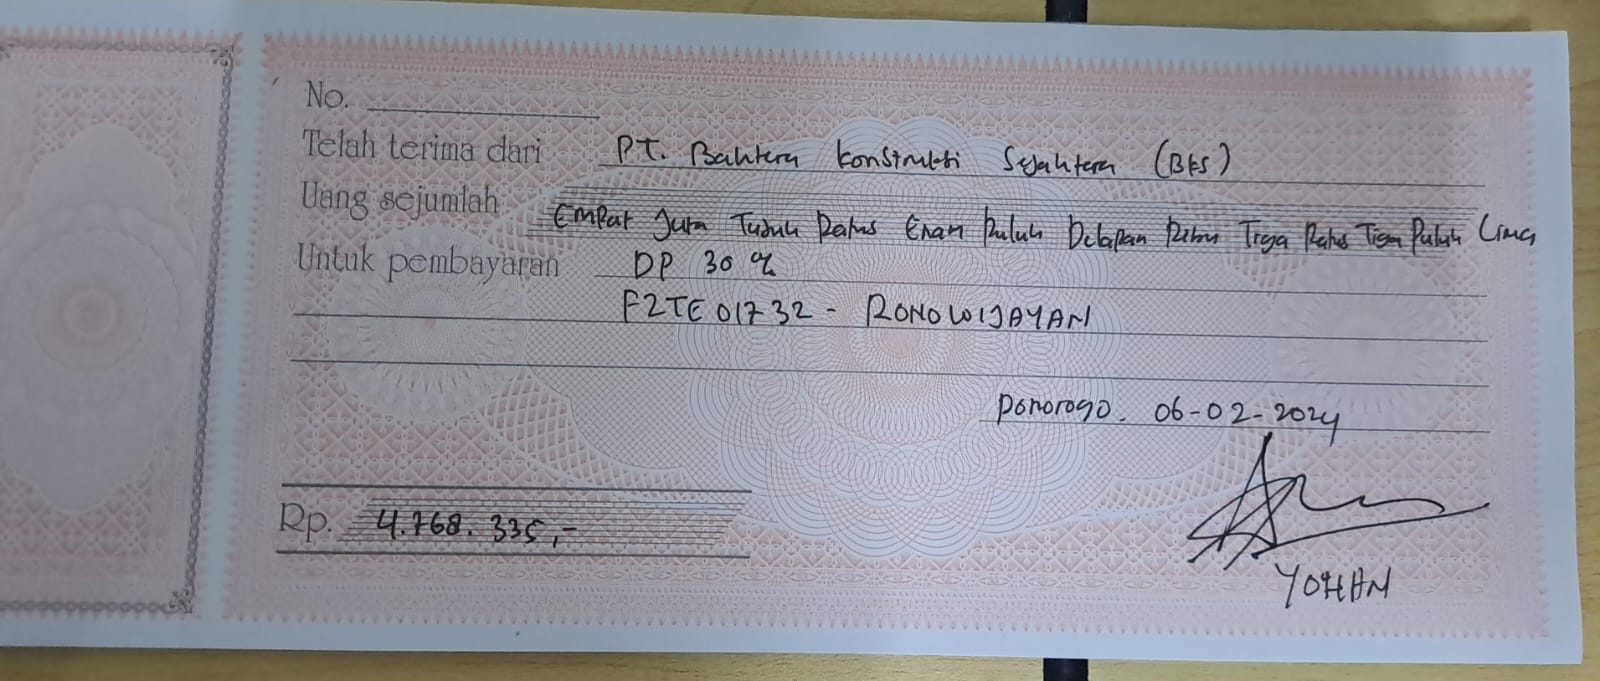 No.
Telah terima dari PT. Bahtera Konstruksi Sejahtera (BKS)
Uang sejumlah Empat Juta Tujuh Ratus Enam Puluh Delapan Ribu Tiga Ratus Tiga Puluh Lima
Untuk pembayaran DP 30 %
F2TE01732 - RONOWIJAYAN
Ponorogo. 06-02-2024
Rp. 4.768.335,-
YOHAN